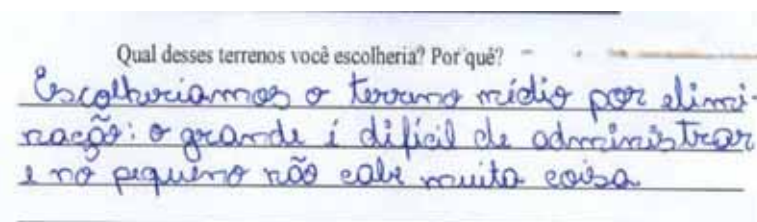 Qual desses terrenos você escolheria? Por quê?
Escolheriamos o terreno médio por elimi-
nação: o grande é difícil de administrar
e no pequeno não cabe muita coisa